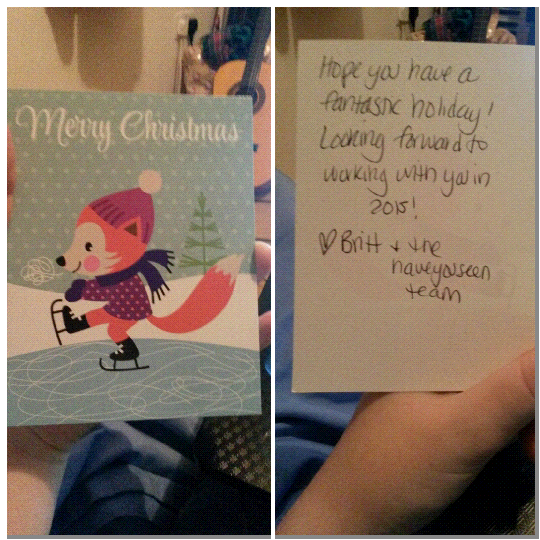 Merry Christmas
Hope you have a
fantastic holiday!
Looking forward to
working with you in
2015!
♡ Britt + the
haveyouseen
team